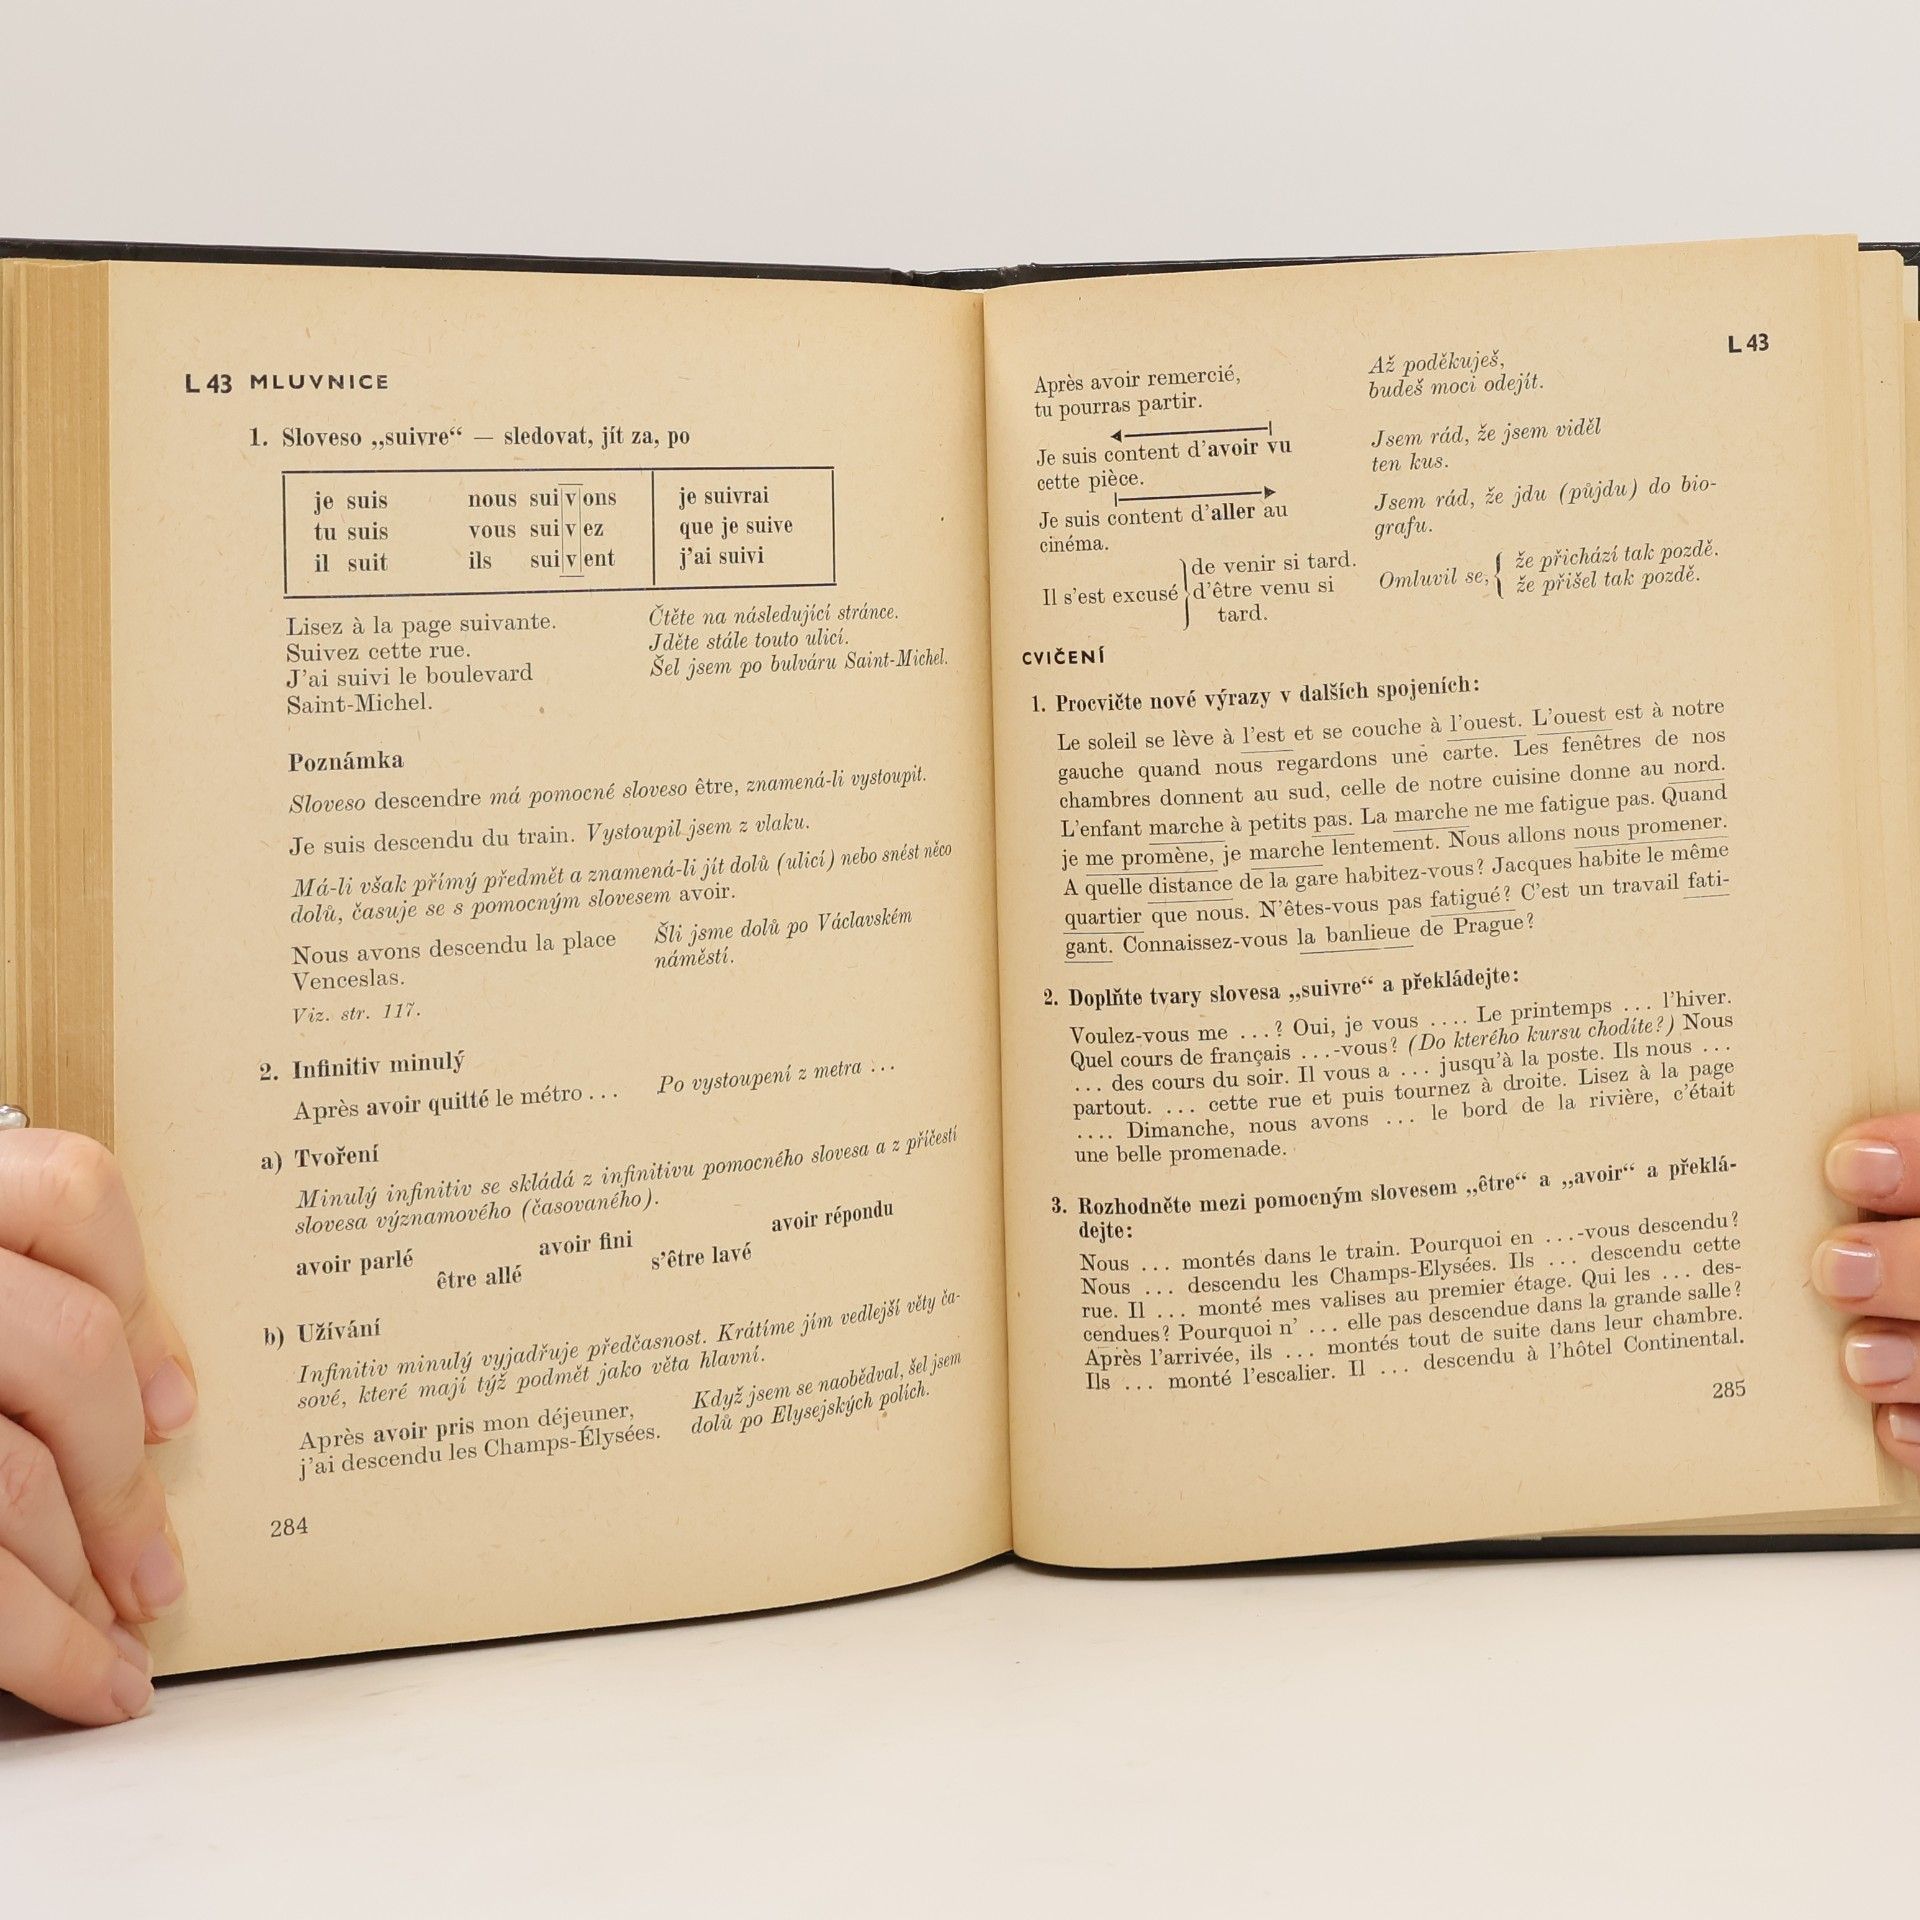 L 43 MLUVNICE
1. Sloveso „suivre“ — sledovat, jít za, po
je suis nous suivons je suivrai
tu suis vous suivez que je suive
il suit ils suivent j'ai suivi
Lisez à la page suivante. Čtěte na následující stránce.
Suivez cette rue. Jděte stále touto ulicí.
J'ai suivi le boulevard Šel jsem po bulváru Saint-Michel.
Saint-Michel.
Poznámka
Sloveso descendre má pomocné sloveso être, znamená-li vystoupit.
Je suis descendu du train. Vystoupil jsem z vlaku.
Má-li však přímý předmět a znamená-li jít dolů (ulicí) nebo snést něco
dolů, časuje se s pomocným slovesem avoir.
Nous avons descendu la place Šli jsme dolů po Václavském
Venceslas. náměstí.
Viz. str. 117.
2. Infinitiv minulý
Après avoir quitté le métro ... Po vystoupení z metra ...
a) Tvoření
Minulý infinitiv se skládá z infinitivu pomocného slovesa a z příčestí
slovesa významového (časovaného).
avoir parlé avoir fini avoir répondu
être allé s'être lavé
b) Užívání
Infinitiv minulý vyjadřuje předčasnost. Krátíme jím vedlejší věty ča-
sové, které mají týž podmět jako věta hlavní.
Après avoir pris mon déjeuner, Když jsem se naobědval, šel jsem
j'ai descendu les Champs-Élysées. dolů po Elysejských polích.
284
L 43
Après avoir remercié, Až poděkuješ,
tu pourras partir. budeš moci odejít.
Je suis content d'avoir vu Jsem rád, že jsem viděl
cette pièce. ten kus.
Je suis content d'aller au Jsem rád, že jdu (půjdu) do bio-
cinéma. grafu.
de venir si tard. že přichází tak pozdě.
Il s'est excusé { d'être venu si Omluvil se, { že přišel tak pozdě.
tard.
CVIČENÍ
1. Procvičte nové výrazy v dalších spojeních:
Le soleil se lève à l'est et se couche à l'ouest. L'ouest est à notre
gauche quand nous regardons une carte. Les fenêtres de nos
chambres donnent au sud, celle de notre cuisine donne au nord.
L'enfant marche à petits pas. La marche ne me fatigue pas. Quand
je me promène, je marche lentement. Nous allons nous promener.
A quelle distance de la gare habitez-vous? Jacques habite le même
quartier que nous. N'êtes-vous pas fatigué? C'est un travail fati-
gant. Connaissez-vous la banlieue de Prague?
2. Doplňte tvary slovesa „suivre“ a překládejte:
Voulez-vous me ...? Oui, je vous .... Le printemps ... l'hiver.
Quel cours de français ...-vous? (Do kterého kursu chodíte?) Nous
... des cours du soir. Il vous a ... jusqu'à la poste. Ils nous ...
partout. ... cette rue et puis tournez à droite. Lisez à la page
.... Dimanche, nous avons ... le bord de la rivière, c'était
une belle promenade.
3. Rozhodněte mezi pomocným slovesem „être“ a „avoir“ a překlá-
dejte:
Nous ... montés dans le train. Pourquoi en ...-vous descendu?
Nous ... descendu les Champs-Elysées. Ils ... descendu cette
rue. Il ... monté mes valises au premier étage. Qui les ... des-
cendues? Pourquoi n' ... elle pas descendue dans la grande salle?
Après l'arrivée, ils ... montés tout de suite dans leur chambre.
Ils ... monté l'escalier. Il ... descendu à l'hôtel Continental.
285